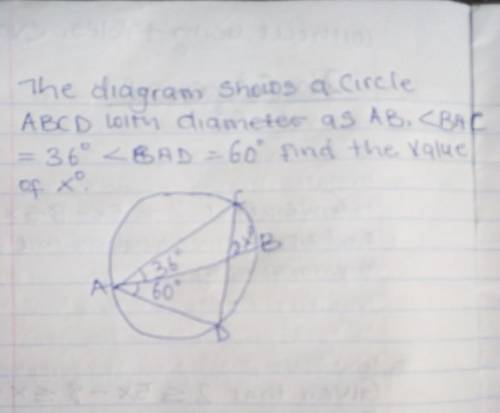 The diagram shows a circle
ABCD with diameter as AB. <BAC
= 36° <BAD = 60° find the value
of x°.
C
x° B
36°
A
60°
D